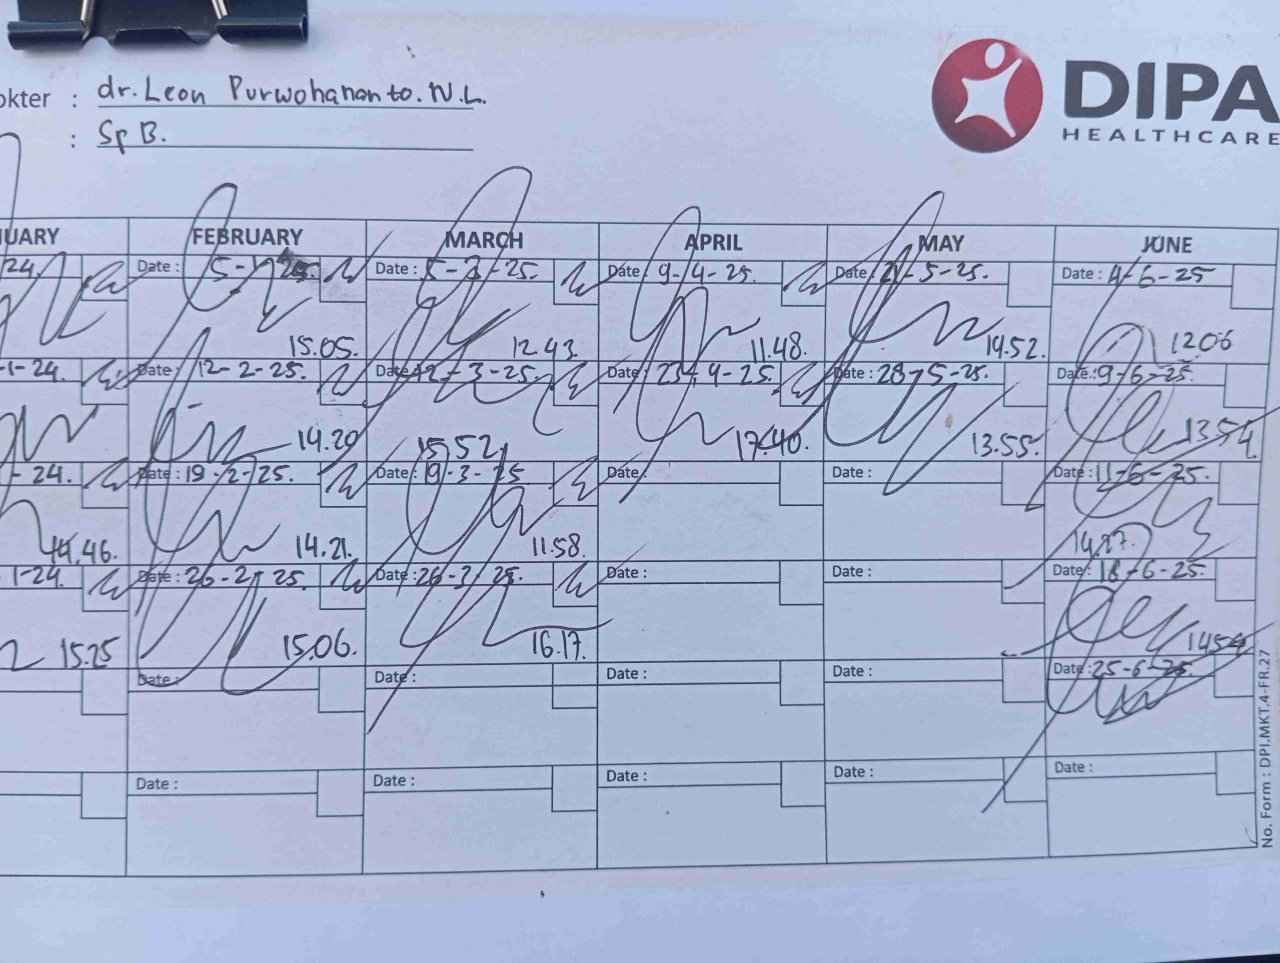 okter : dr. Leon Purwohananto. N.L.
: Sp B.
DIPA
HEALTHCARE
UARY FEBRUARY MARCH APRIL MAY JUNE
24. Date : 5- 25. Date : 5-3-25. Date : 9-4-25. Date : 21-5-25. Date : 4-6-25
15.05. 12.43 11.48. 14.52. 12.06
-1-24. Date : 12-2-25. Date : 12-3-25. Date : 23-4-25. Date : 28-5-25. Date : 9-6-25.
14.20 15.52 17.40. 13.55. 13.54
- 24. Date : 19-2-25. Date : 19-3-25 Date : Date : Date : 11-6-25.
14.46. 14.21. 11.58. 14.27.
1-24. Date : 26-2-25 Date : 26-3-25. Date : Date : Date : 18-6-25.
15.25 15.06. 16.17. 14.54
Date : Date : Date : Date : Date : 25-6-25.
Date : Date : Date : Date : Date :
No. Form : DPI.MKT.4-FR.27